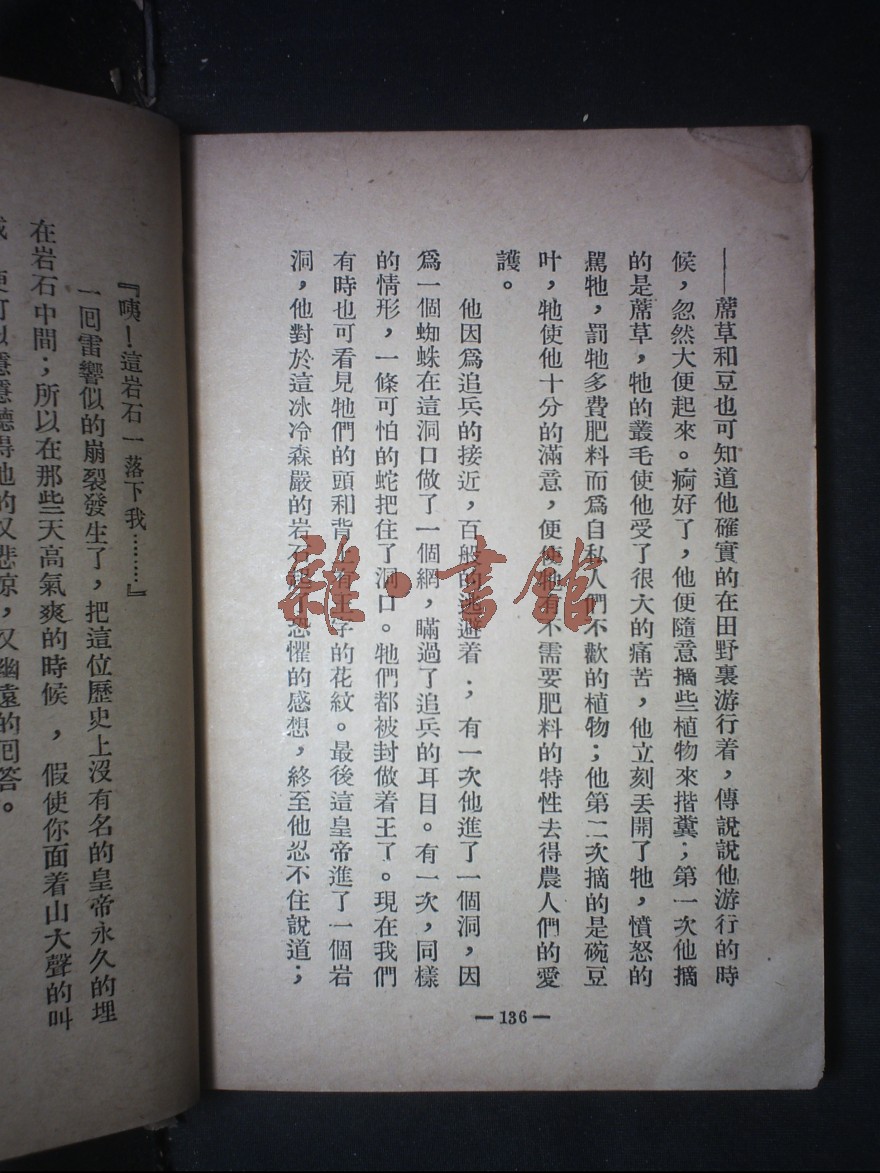 ——蓆草和豆也可知道他確實的在田野裏游行着，傳說說他游行的時
候，忽然大便起來。痾好了，他便隨意摘些植物來揩糞；第一次他摘
的是蓆草，牠的叢毛使他受了很大的痛苦，他立刻丟開了牠，憤怒的
罵牠，罰牠多費肥料而爲自私人們不歡的植物；他第二次摘的是碗豆
叶，牠使他十分的滿意，便使牠有不需要肥料的特性去得農人們的愛
護。
他因爲追兵的接近，百般的逃避着；有一次他進了一個洞，因
爲一個蜘蛛在這洞口做了一個網，瞞過了追兵的耳目。有一次，同樣
的情形，一條可怕的蛇把住了洞口。牠們都被封做着王了。現在我們
有時也可看見牠們的頭和背上有王字的花紋。最後這皇帝進了一個岩
洞，他對於這冰冷森嚴的岩石起了恐懼的感想，終至他忍不住說道；
—136—
『咦！這岩石一落下我………』
一囘雷響似的崩裂發生了，把這位歷史上沒有名的皇帝永久的埋
在岩石中間；所以在那些天高氣爽的時候，假使你面着山大聲的叫
更可以隱隱聽得他的又悲凉，又幽遠的囘答。
雜·書館